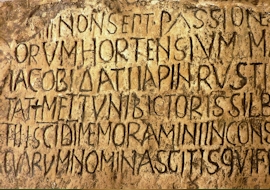 NON SEPT PASSIONE
ORVM HORTENSIVM M
IACOBI DATI IAPIN RVSTI
TATI METTVNI BICTORIS SILB
TII SCI DI MEMORAMINI IN CONS
QVORVM NOMINA SCITIS QVI FE